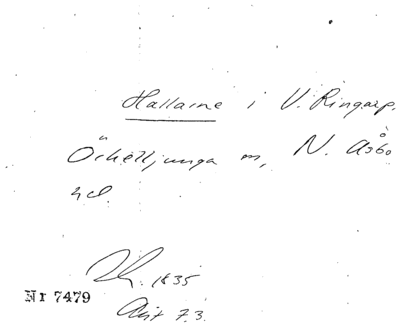 Hallarne i V. Ringarp.
Örkelljunga sn, N. Åsbo
hd.
1835
Nr 7479
Akt 73.